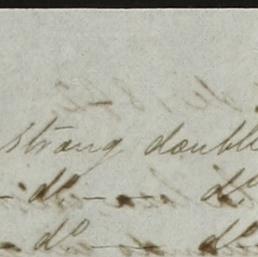 strong double
- do - - - do
- do - - - do